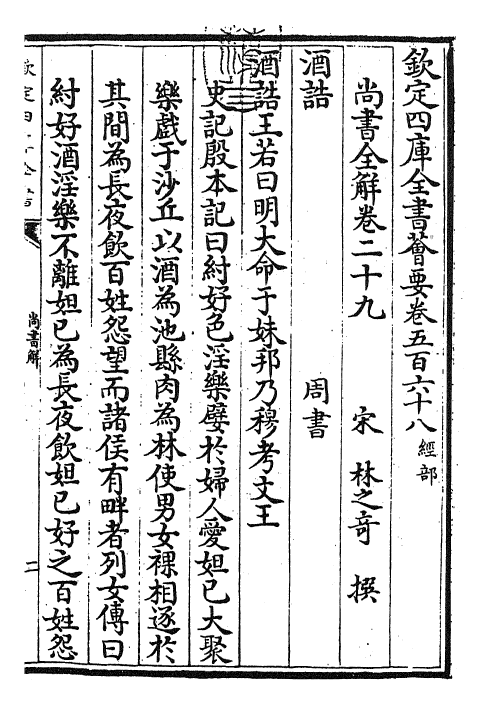 欽定四庫全書薈要卷五百六十八 經部
尚書全解卷二十九 宋 林之奇 撰
酒誥 周書
酒誥王若曰明大命于妹邦乃穆考文王
史記殷本記曰紂好色淫樂嬖於婦人愛妲已大聚
樂戲于沙丘以酒為池縣肉為林使男女裸相逐於
其間為長夜飲百姓怨望而諸侯有畔者列女傳曰
紂好酒淫樂不離妲已為長夜飲妲已好之百姓怨
欽定四庫全書
尚書解
二